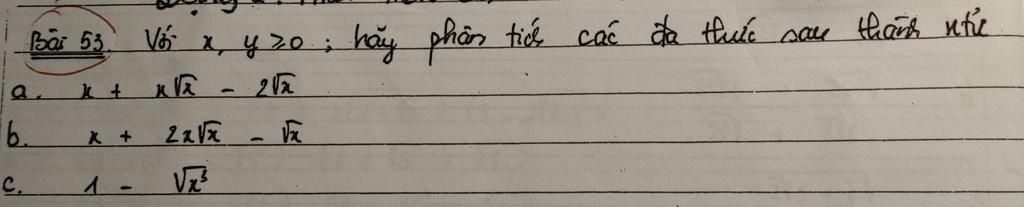 Bài 53. Với x, y ≥ 0 ; hãy phân tích các đa thức sau thành ntử
a. x + x√x - 2√x
b. x + 2x√x - √x
c. 1 - √x³